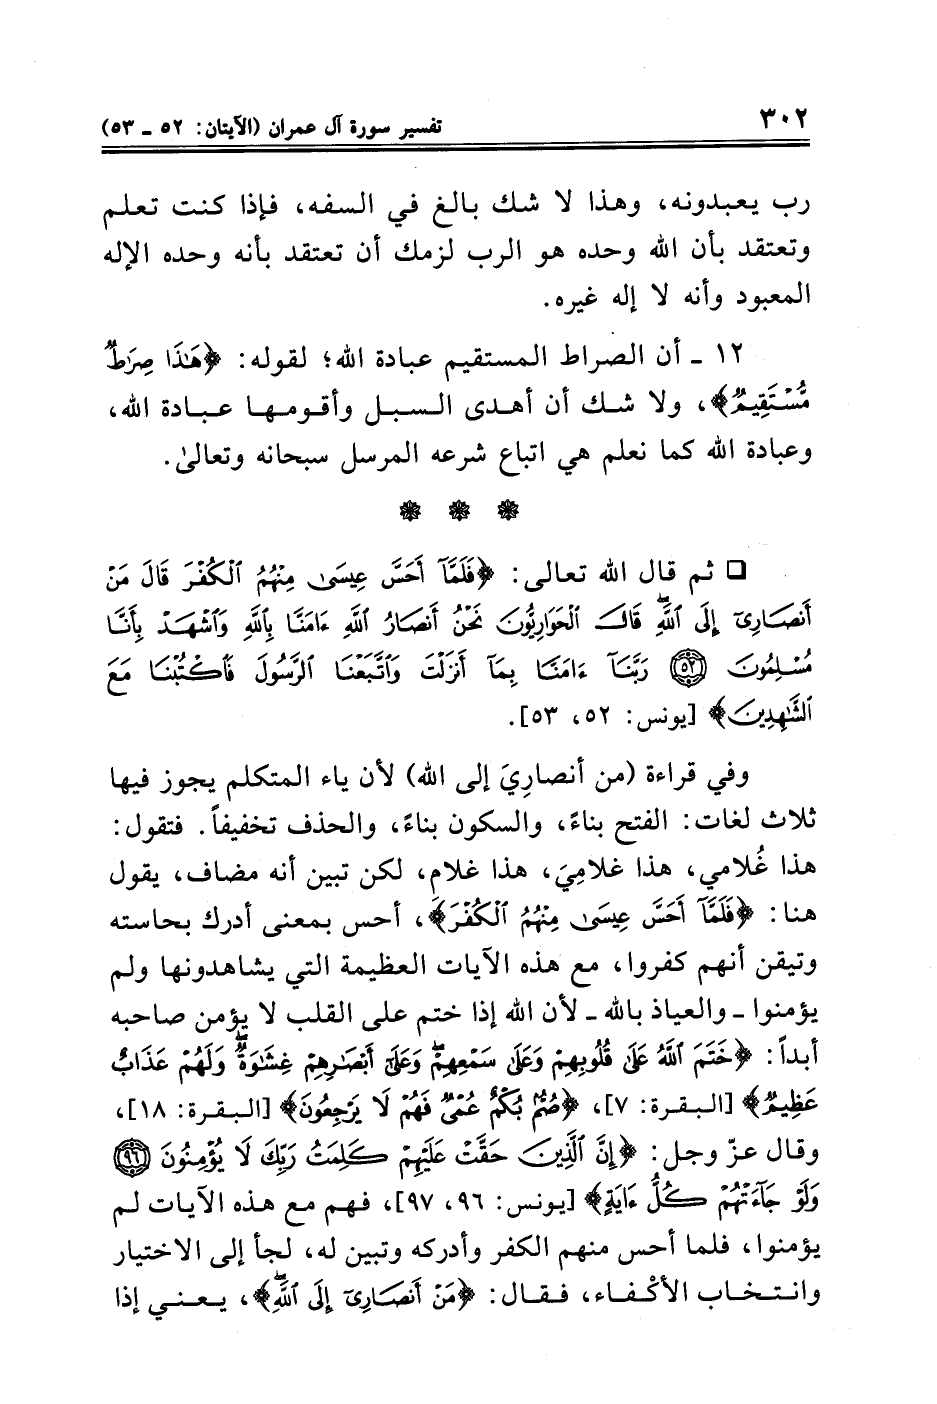 ٣٠٢
تفسير سورة آل عمران (الآيتان: ٥٢ ـ ٥٣)
رب يعبدونه، وهذا لا شك بالغ في السفه، فإذا كنت تعلم
وتعتقد بأن الله وحده هو الرب لزمك أن تعتقد بأنه وحده الإله
المعبود وأنه لا إله غيره.
١٢ ـ أن الصراط المستقيم عبادة الله؛ لقوله: ﴿هَٰذَا صِرَٰطٌ
مُّسْتَقِيمٌ﴾، ولا شك أن أهدى السبل وأقومها عبادة الله،
وعبادة الله كما نعلم هي اتباع شرعه المرسل سبحانه وتعالىٰ.
❁ ❁ ❁
□ ثم قال الله تعالى: ﴿فَلَمَّآ أَحَسَّ عِيسَىٰ مِنْهُمُ ٱلْكُفْرَ قَالَ مَنْ
أَنصَارِىٓ إِلَى ٱللَّهِۖ قَالَ ٱلْحَوَارِيُّونَ نَحْنُ أَنصَارُ ٱللَّهِ ءَامَنَّا بِٱللَّهِ وَٱشْهَدْ بِأَنَّا
مُسْلِمُونَ ﴿٥٢﴾ رَبَّنَآ ءَامَنَّا بِمَآ أَنزَلْتَ وَٱتَّبَعْنَا ٱلرَّسُولَ فَٱكْتُبْنَا مَعَ
ٱلشَّٰهِدِينَ﴾ [يونس: ٥٢، ٥٣].
وفي قراءة (من أنصارِيَ إلى الله) لأن ياء المتكلم يجوز فيها
ثلاث لغات: الفتح بناءً، والسكون بناءً، والحذف تخفيفاً. فتقول:
هذا غُلامي، هذا غلامِيَ، هذا غلامِ، لكن تبين أنه مضاف، يقول
هنا: ﴿فَلَمَّآ أَحَسَّ عِيسَىٰ مِنْهُمُ ٱلْكُفْرَ﴾، أحس بمعنى أدرك بحاسته
وتيقن أنهم كفروا، مع هذه الآيات العظيمة التي يشاهدونها ولم
يؤمنوا ـ والعياذ بالله ـ لأن الله إذا ختم على القلب لا يؤمن صاحبه
أبداً: ﴿خَتَمَ ٱللَّهُ عَلَىٰ قُلُوبِهِمْ وَعَلَىٰ سَمْعِهِمْۖ وَعَلَىٰٓ أَبْصَٰرِهِمْ غِشَٰوَةٌۖ وَلَهُمْ عَذَابٌ
عَظِيمٌ﴾ [البقرة: ٧]، ﴿صُمٌّۢ بُكْمٌ عُمْىٌ فَهُمْ لَا يَرْجِعُونَ﴾ [البقرة: ١٨]،
وقال عزّ وجل: ﴿إِنَّ ٱلَّذِينَ حَقَّتْ عَلَيْهِمْ كَلِمَتُ رَبِّكَ لَا يُؤْمِنُونَ ﴿٩٦﴾
وَلَوْ جَآءَتْهُمْ كُلُّ ءَايَةٍ﴾ [يونس: ٩٦، ٩٧]، فهم مع هذه الآيات لم
يؤمنوا، فلما أحس منهم الكفر وأدركه وتبين له، لجأ إلى الاختيار
وانتخاب الأكْفاء، فقال: ﴿مَنْ أَنصَارِىٓ إِلَى ٱللَّهِۖ﴾، يعني إذا